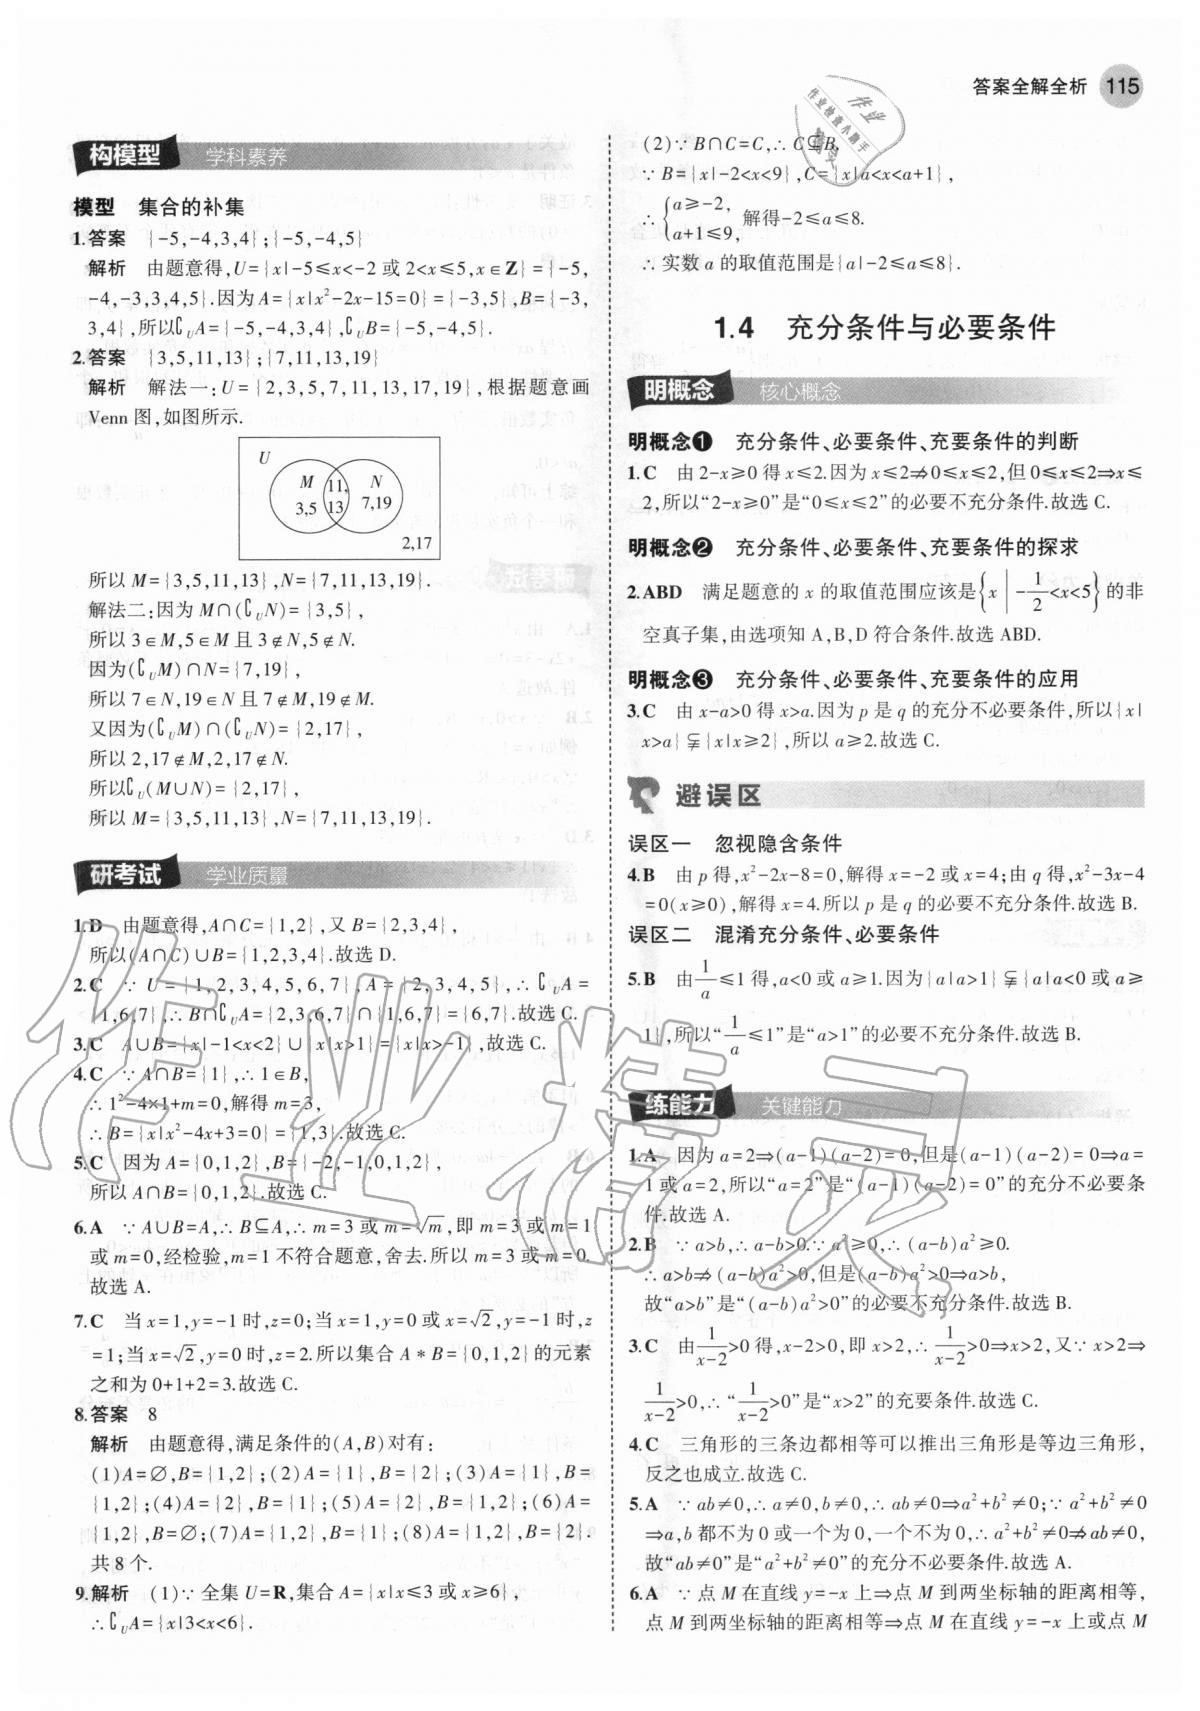 答案全解全析 115
构模型 学科素养
模型 集合的补集
1.答案 {-5,-4,3,4};{-5,-4,5}
解析 由题意得,U={x|-5≤x<-2或2<x≤5,x∈Z}={-5,
-4,-3,3,4,5}.因为A={x|x²-2x-15=0}={-3,5},B={-3,
3,4},所以∁UA={-5,-4,3,4},∁UB={-5,-4,5}.
2.答案 {3,5,11,13};{7,11,13,19}
解析 解法一:U={2,3,5,7,11,13,17,19},根据题意画
Venn图,如图所示.
U
M 11, N
3,5 13 7,19
2,17
所以M={3,5,11,13},N={7,11,13,19}.
解法二:因为M∩(∁UN)={3,5},
所以3∈M,5∈M且3∉N,5∉N.
因为(∁UM)∩N={7,19},
所以7∈N,19∈N且7∉M,19∉M.
又因为(∁UM)∩(∁UN)={2,17},
所以2,17∉M,2,17∉N.
所以∁U(M∪N)={2,17},
所以M={3,5,11,13},N={7,11,13,19}.
研考试 学业质量
1.D 由题意得,A∩C={1,2},又B={2,3,4},
所以(A∩C)∪B={1,2,3,4}.故选D.
2.C ∵U={1,2,3,4,5,6,7},A={2,3,4,5},∴∁UA=
{1,6,7},∴B∩∁UA={2,3,6,7}∩{1,6,7}={6,7}.故选C.
3.C A∪B={x|-1<x<2}∪{x|x>1}={x|x>-1},故选C.
4.C ∵A∩B={1},∴1∈B,
∴1²-4×1+m=0,解得m=3,
∴B={x|x²-4x+3=0}={1,3}.故选C.
5.C 因为A={0,1,2},B={-2,-1,0,1,2},
所以A∩B={0,1,2}.故选C.
6.A ∵A∪B=A,∴B⊆A,∴m=3或m=√m,即m=3或m=1
或m=0,经检验,m=1不符合题意,舍去.所以m=3或m=0.
故选A.
7.C 当x=1,y=-1时,z=0;当x=1,y=0或x=√2,y=-1时,z
=1;当x=√2,y=0时,z=2.所以集合A*B={0,1,2}的元素
之和为0+1+2=3.故选C.
8.答案 8
解析 由题意得,满足条件的(A,B)对有:
(1)A=∅,B={1,2};(2)A={1},B={2};(3)A={1},B=
{1,2};(4)A={2},B={1};(5)A={2},B={1,2};(6)A=
{1,2},B=∅;(7)A={1,2},B={1};(8)A={1,2},B={2}.
共8个.
9.解析 (1)∵全集U=R,集合A={x|x≤3或x≥6},
∴∁UA={x|3<x<6}.
(2)∵B∩C=C,∴C⊆B,
∵B={x|-2<x<9},C={x|a<x<a+1},
∴{a≥-2, a+1≤9, 解得-2≤a≤8.
∴实数a的取值范围是{a|-2≤a≤8}.
1.4 充分条件与必要条件
明概念 核心概念
明概念❶ 充分条件、必要条件、充要条件的判断
1.C 由2-x≥0得x≤2.因为x≤2⇏0≤x≤2,但0≤x≤2⇒x≤
2,所以“2-x≥0”是“0≤x≤2”的必要不充分条件.故选C.
明概念❷ 充分条件、必要条件、充要条件的探求
2.ABD 满足题意的x的取值范围应该是{x|-1/2<x<5}的非
空真子集,由选项知A,B,D符合条件.故选ABD.
明概念❸ 充分条件、必要条件、充要条件的应用
3.C 由x-a>0得x>a.因为p是q的充分不必要条件,所以{x|
x>a}⫋{x|x≥2},所以a≥2.故选C.
避误区
误区一 忽视隐含条件
4.B 由p得,x²-2x-8=0,解得x=-2或x=4;由q得,x²-3x-4
=0(x≥0),解得x=4.所以p是q的必要不充分条件.故选B.
误区二 混淆充分条件、必要条件
5.B 由1/a≤1得,a<0或a≥1.因为{a|a>1}⫋{a|a<0或a≥
1},所以“1/a≤1”是“a>1”的必要不充分条件.故选B.
练能力 关键能力
1.A 因为a=2⇒(a-1)(a-2)=0,但是(a-1)(a-2)=0⇒a=
1或a=2,所以“a=2”是“(a-1)(a-2)=0”的充分不必要条
件.故选A.
2.B ∵a>b,∴a-b>0.∵a²≥0,∴(a-b)a²≥0.
∴a>b⇏(a-b)a²>0,但是(a-b)a²>0⇒a>b,
故“a>b”是“(a-b)a²>0”的必要不充分条件.故选B.
3.C 由1/(x-2)>0得,x-2>0,即x>2,∴1/(x-2)>0⇒x>2,又∵x>2⇒
1/(x-2)>0,∴“1/(x-2)>0”是“x>2”的充要条件.故选C.
4.C 三角形的三条边都相等可以推出三角形是等边三角形,
反之也成立.故选C.
5.A ∵ab≠0,∴a≠0,b≠0,∴ab≠0⇒a²+b²≠0;∵a²+b²≠0
⇒a,b都不为0或一个为0,一个不为0,∴a²+b²≠0⇏ab≠0,
故“ab≠0”是“a²+b²≠0”的充分不必要条件.故选A.
6.A ∵点M在直线y=-x上⇒点M到两坐标轴的距离相等,
点M到两坐标轴的距离相等⇒点M在直线y=-x上或点M
作业精灵
作业
作业检查小助手